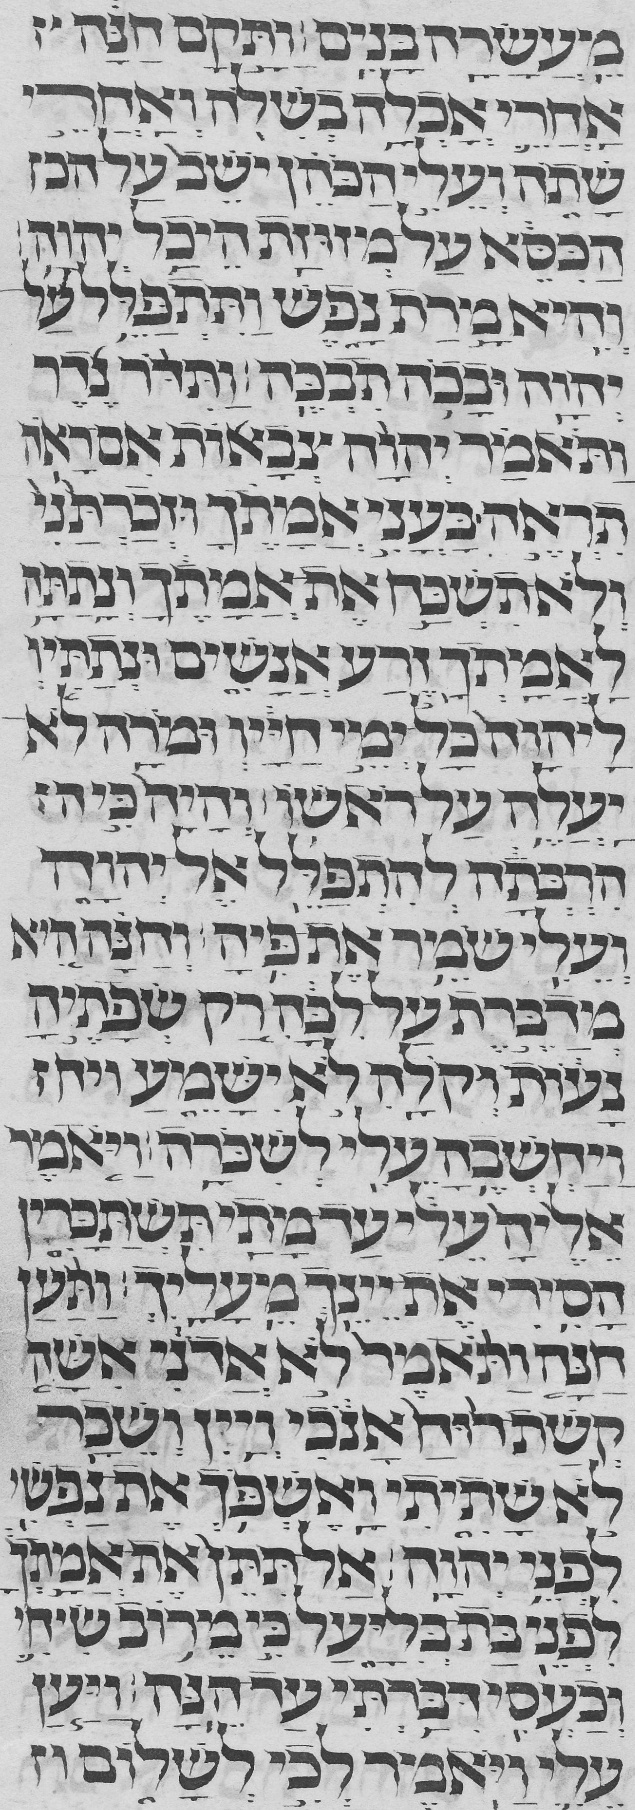 מֵעֲשָׂרָה בָּנִים׃ וַתָּקָם חַנָּה יז
אַחֲרֵי אָכְלָה בְשִׁלֹה וְאַחֲרֵי
שָׁתֹה וְעֵלִי הַכֹּהֵן יֹשֵׁב עַל הכז
הַכִּסֵּא עַל מְזוּזַת הֵיכַל יְהוָה׃
וְהִיא מָרַת נָפֶשׁ וַתִּתְפַּלֵּל עַל
יְהוָה וּבָכֹה תִבְכֶּה׃ וַתִּדֹּר נֶדֶר
וַתֹּאמַר יְהוָה צְבָאוֹת אִם רָאֹה
תִרְאֶה בָּעֳנִי אֲמָתֶךָ וּזְכַרְתַּנִי
וְלֹא תִשְׁכַּח אֶת אֲמָתֶךָ וְנָתַתָּה
לַאֲמָתְךָ זֶרַע אֲנָשִׁים וּנְתַתִּיו
לַיהוָה כָּל יְמֵי חַיָּיו וּמוֹרָה לֹא
יַעֲלֶה עַל רֹאשׁוֹ׃ וְהָיָה כִּי הז
הִרְבְּתָה לְהִתְפַּלֵּל אֶל יְהוָה
וְעֵלִי שֹׁמֵר אֶת פִּיהָ׃ וְחַנָּה הִיא
מְדַבֶּרֶת עַל לִבָּהּ רַק שְׂפָתֶיהָ
נָּעוֹת וְקֹלָהּ לֹא יִשָּׁמֵעַ ויח ז
וַיַּחְשְׁבֶהָ עֵלִי לְשִׁכֹּרָה׃ וַיֹּאמֶר
אֵלֶיהָ עֵלִי עַד מָתַי תִּשְׁתַּכָּרִין
הָסִירִי אֶת יֵינֵךְ מֵעָלָיִךְ׃ וַתַּעַן
חַנָּה וַתֹּאמֶר לֹא אֲדֹנִי אִשָּׁה
קְשַׁת רוּחַ אָנֹכִי וְיַיִן וְשֵׁכָר
לֹא שָׁתִיתִי וָאֶשְׁפֹּךְ אֶת נַפְשִׁי
לִפְנֵי יְהוָה׃ אַל תִּתֵּן אֶת אֲמָתְךָ
לִפְנֵי בַּת בְּלִיָּעַל כִּי מֵרֹוב שִׂיחִי
וְכַעְסִי דִּבַּרְתִּי עַד הֵנָּה׃ וַיַּעַן
עֵלִי וַיֹּאמֶר לְכִי לְשָׁלוֹם וז